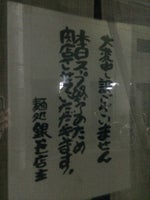 大変申し訳ございません
本日スープ切れのため
閉店させていただきます。
麺処 銀笹店主